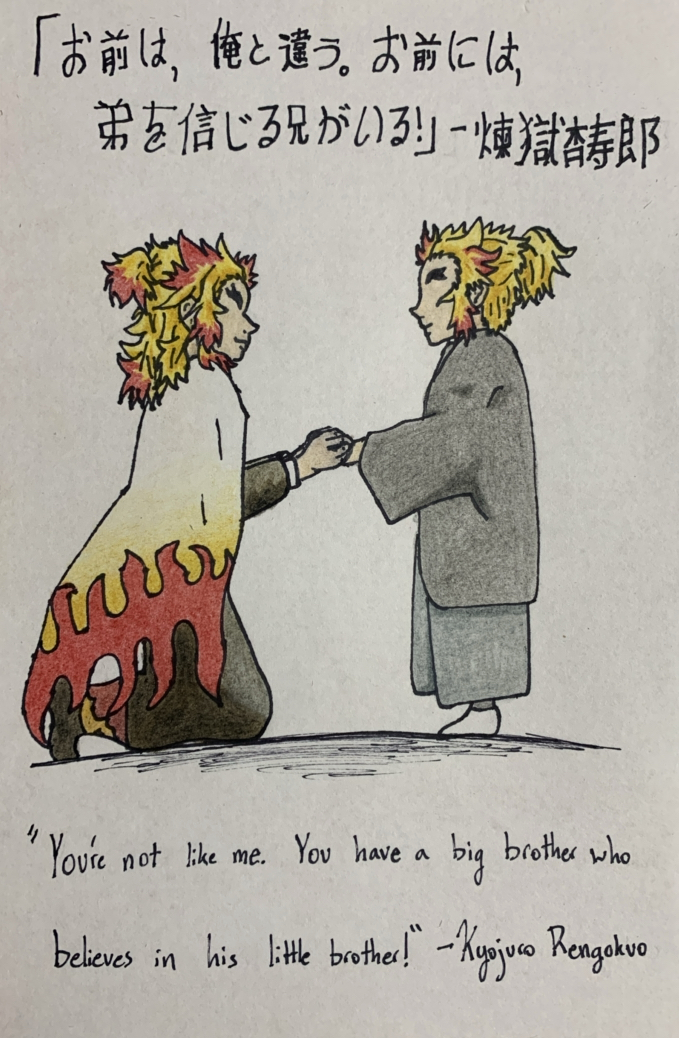 「お前は, 俺と違う。お前には,
弟を信じる兄がいる!」-煉獄杏寿郎
"You're not like me. You have a big brother who
believes in his little brother!" -Kyojuro Rengokuo